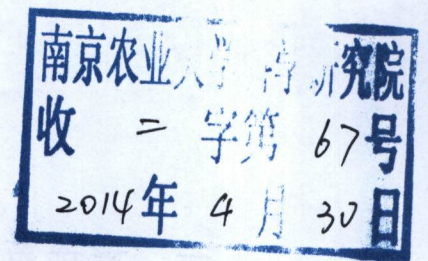 南京农业大学 研究院
收 二 字第 67号
2014年 4月 30日